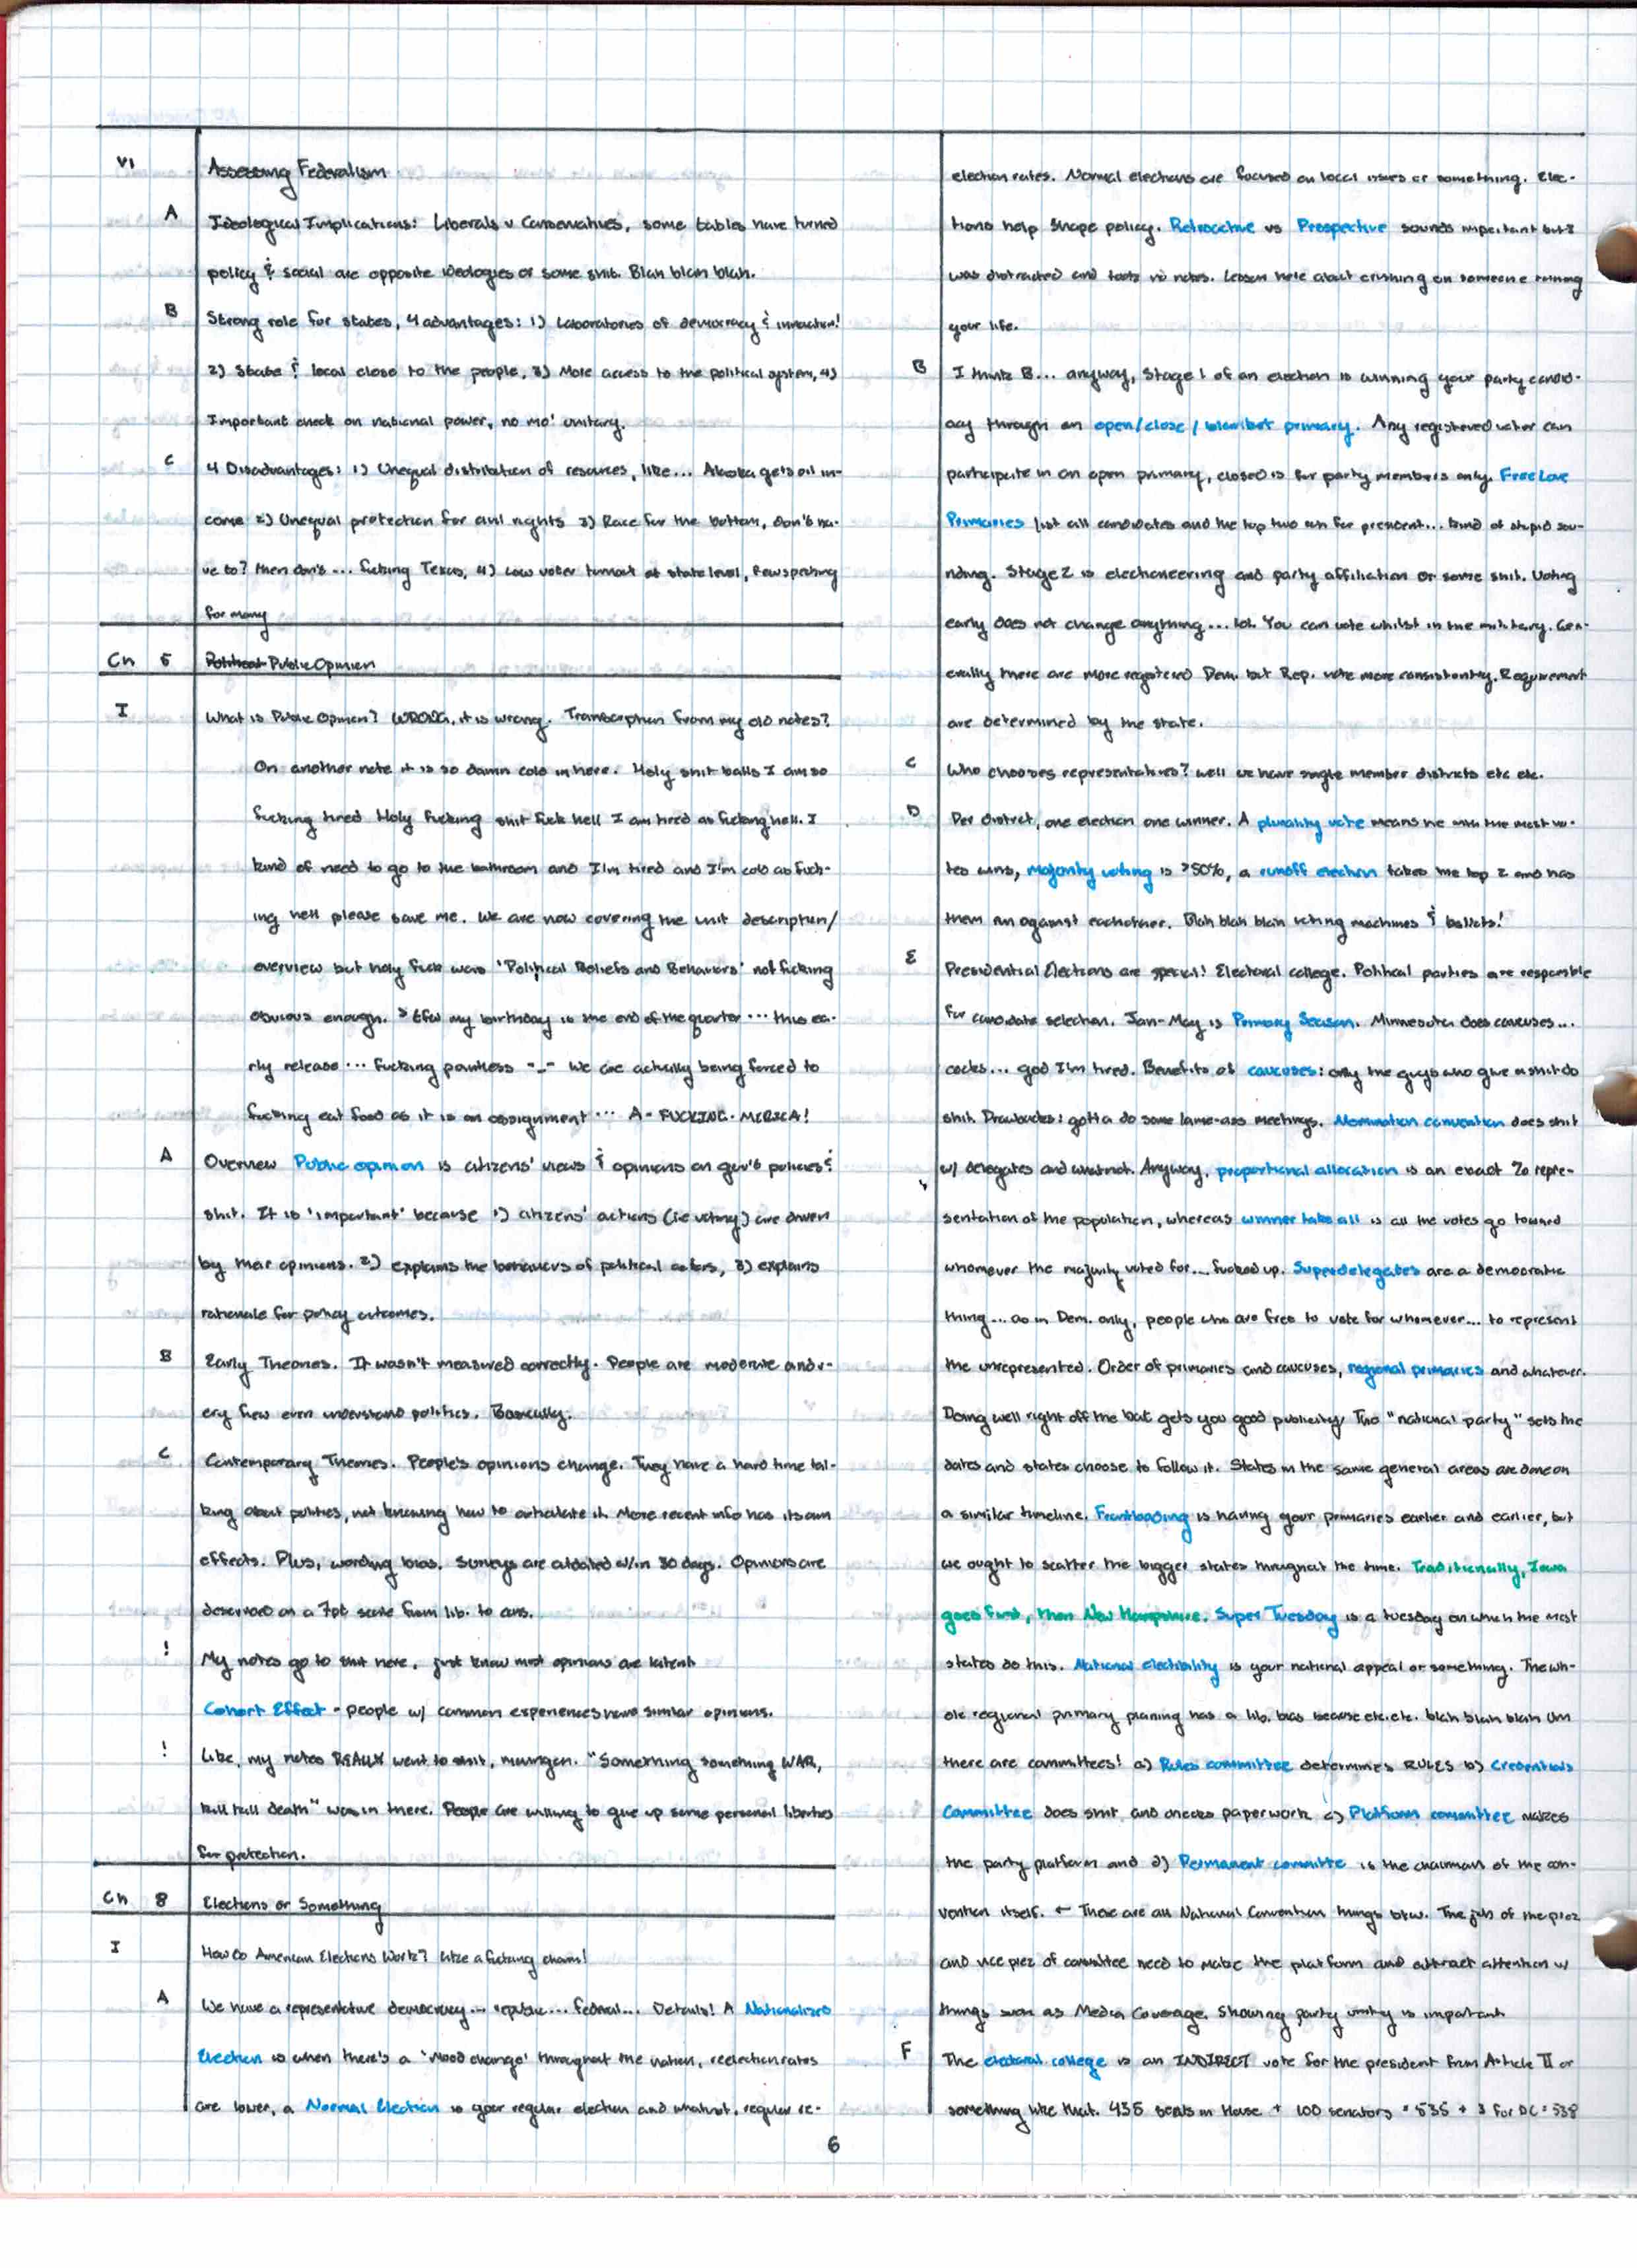 VI Assessing Federalism
A Ideological Implications: Liberals v Conservatives, some tables have turned
policy & social are opposite ideologies or some shit. Blah blah blah.
B Strong role for states, 4 advantages: 1) Laboratories of democracy & innovation!
2) State & local close to the people, 3) More access to the political system, 4)
Important check on national power, no mo' unitary.
C 4 Disadvantages: 1) Unequal distribution of resources, like... Alaska gets oil in-
come 2) Unequal protection for civil rights 3) Race for the bottom, don't ha-
ve to? Then don't... fucking Texas, 4) Low voter turnout at state level,
for many
Ch 5 Political Public Opinion
I What is Public Opinion? WRONG, it is wrong. Transcription from my old notes?
On another note it is so damn cold in here. Holy shit balls I am so
fucking tired Holy fucking shit fuck hell I am tired as fucking hell. I
kind of need to go to the bathroom and I'm tired and I'm cold as fuck-
ing hell please save me. We are now covering the unit description/
overview but holy fuck was 'Political Beliefs and Behaviors' not fucking
obvious enough. my birthday is the end of the quarter... this ea-
rly release... fucking pointless -_- We are actually being forced to
fucking eat food as it is an assignment... A-FUCKING-MERICA!
A Overview Public opinion is citizens' views & opinions on gov't policies &
shit. It is 'important' because 1) citizens' actions (ie voting) are driven
by their opinions. 2) explains the behaviors of political actors, 3) explains
rationale for policy outcomes.
B Early Theories. It wasn't measured correctly. People are moderate and v-
ery few even understand politics. Basically.
C Contemporary Themes. People's opinions change. They have a hard time tal-
king about politics, not knowing how to articulate it. More recent info has its own
effects. Plus, wording bias. Surveys are outdated w/in 30 days. Opinions are
described on a 7pt scale from lib. to cons.
! My notes go to shit here, just know most opinions are latent
Cohort Effect - people w/ common experiences have similar opinions.
! Like, my notes REALLY went to shit, "Something something WAR,
kill kill death" was in there. People are willing to give up some personal liberties
for protection.
Ch 8 Elections or Something
I How Do American Elections Work? Like a fucking charm!
A We have a representative democracy... republic... federal... Details! A Nationalized
Election is when there's a 'mood change' throughout the nation, reelection rates
are lower, a Normal Election is your regular election and whatnot, regular re-
election rates. Normal elections are focused on local issues or something. Elec-
tions help shape policy. Retroactive vs Prospective sounds important but I
was distracted and took no notes. Lesson here about crushing on someone ruining
your life.
B I think B... anyway, Stage 1 of an election is winning your party candid-
acy through an open/close/blanket primary. Any registered voter can
participate in an open primary, closed is for party members only. Free Love
Primaries list all candidates and the top two run for president... kind of stupid sou-
nding. Stage 2 is electioneering and party affiliation or some shit. Voting
early does not change anything... lol. You can vote whilst in the military. Gen-
erally there are more registered Dem. but Rep. vote more consistently. Requirement
are determined by the state.
C Who chooses representatives? well we have single member districts etc etc.
D Per district, one election one winner. A plurality vote means he with the most vo-
tes wins, majority voting is >50%, a runoff election takes the top 2 and has
them run against eachother. Blah blah blah voting machines & ballots!
E Presidential Elections are special! Electoral college. Political parties are responsible
for candidate selection. Jan-May is Primary Season. Minnesota does caucuses...
cocks... god I'm tired. Benefits of caucuses: only the guys who give a shit do
shit. Drawbacks: gotta do some lame-ass meetings. Nomination convention does shit
w/ delegates and whatnot. Anyway, proportional allocation is an exact % repre-
sentation of the population, whereas winner take all is all the votes go toward
whomever the majority voted for... fucked up. Superdelegates are a democratic
thing... as in Dem. only, people who are free to vote for whomever... to represent
the unrepresented. Order of primaries and caucuses, regional primaries and whatever.
Doing well right off the bat gets you good publicity. The "national party" sets the
dates and states choose to follow it. States in the same general areas are done on
a similar timeline. Frontloading is having your primaries earlier and earlier, but
we ought to scatter the bigger states throughout the time. Traditionally, Iowa
goes first, then New Hampshire. Super Tuesday is a tuesday on which the most
states do this. National electibility is your national appeal or something. The wh-
ole regional primary planing has a lib. bias because etc.etc. blah blah blah Um
there are committees! a) Rules committee determines RULES b) Credentials
Committee does shit and checks paperwork c) Platform committee makes
the party platform and d) Permanent committe is the chairman of the con-
vention itself. ← These are all National Convention things btw. The job of the prez
and vice prez of committee need to make the platform and attract attention w/
things such as Media Coverage. Showing party unity is important
F The electoral college is an INDIRECT vote for the president from Article II or
something like that. 435 seats in House + 100 senators = 535 + 3 for DC = 538
6